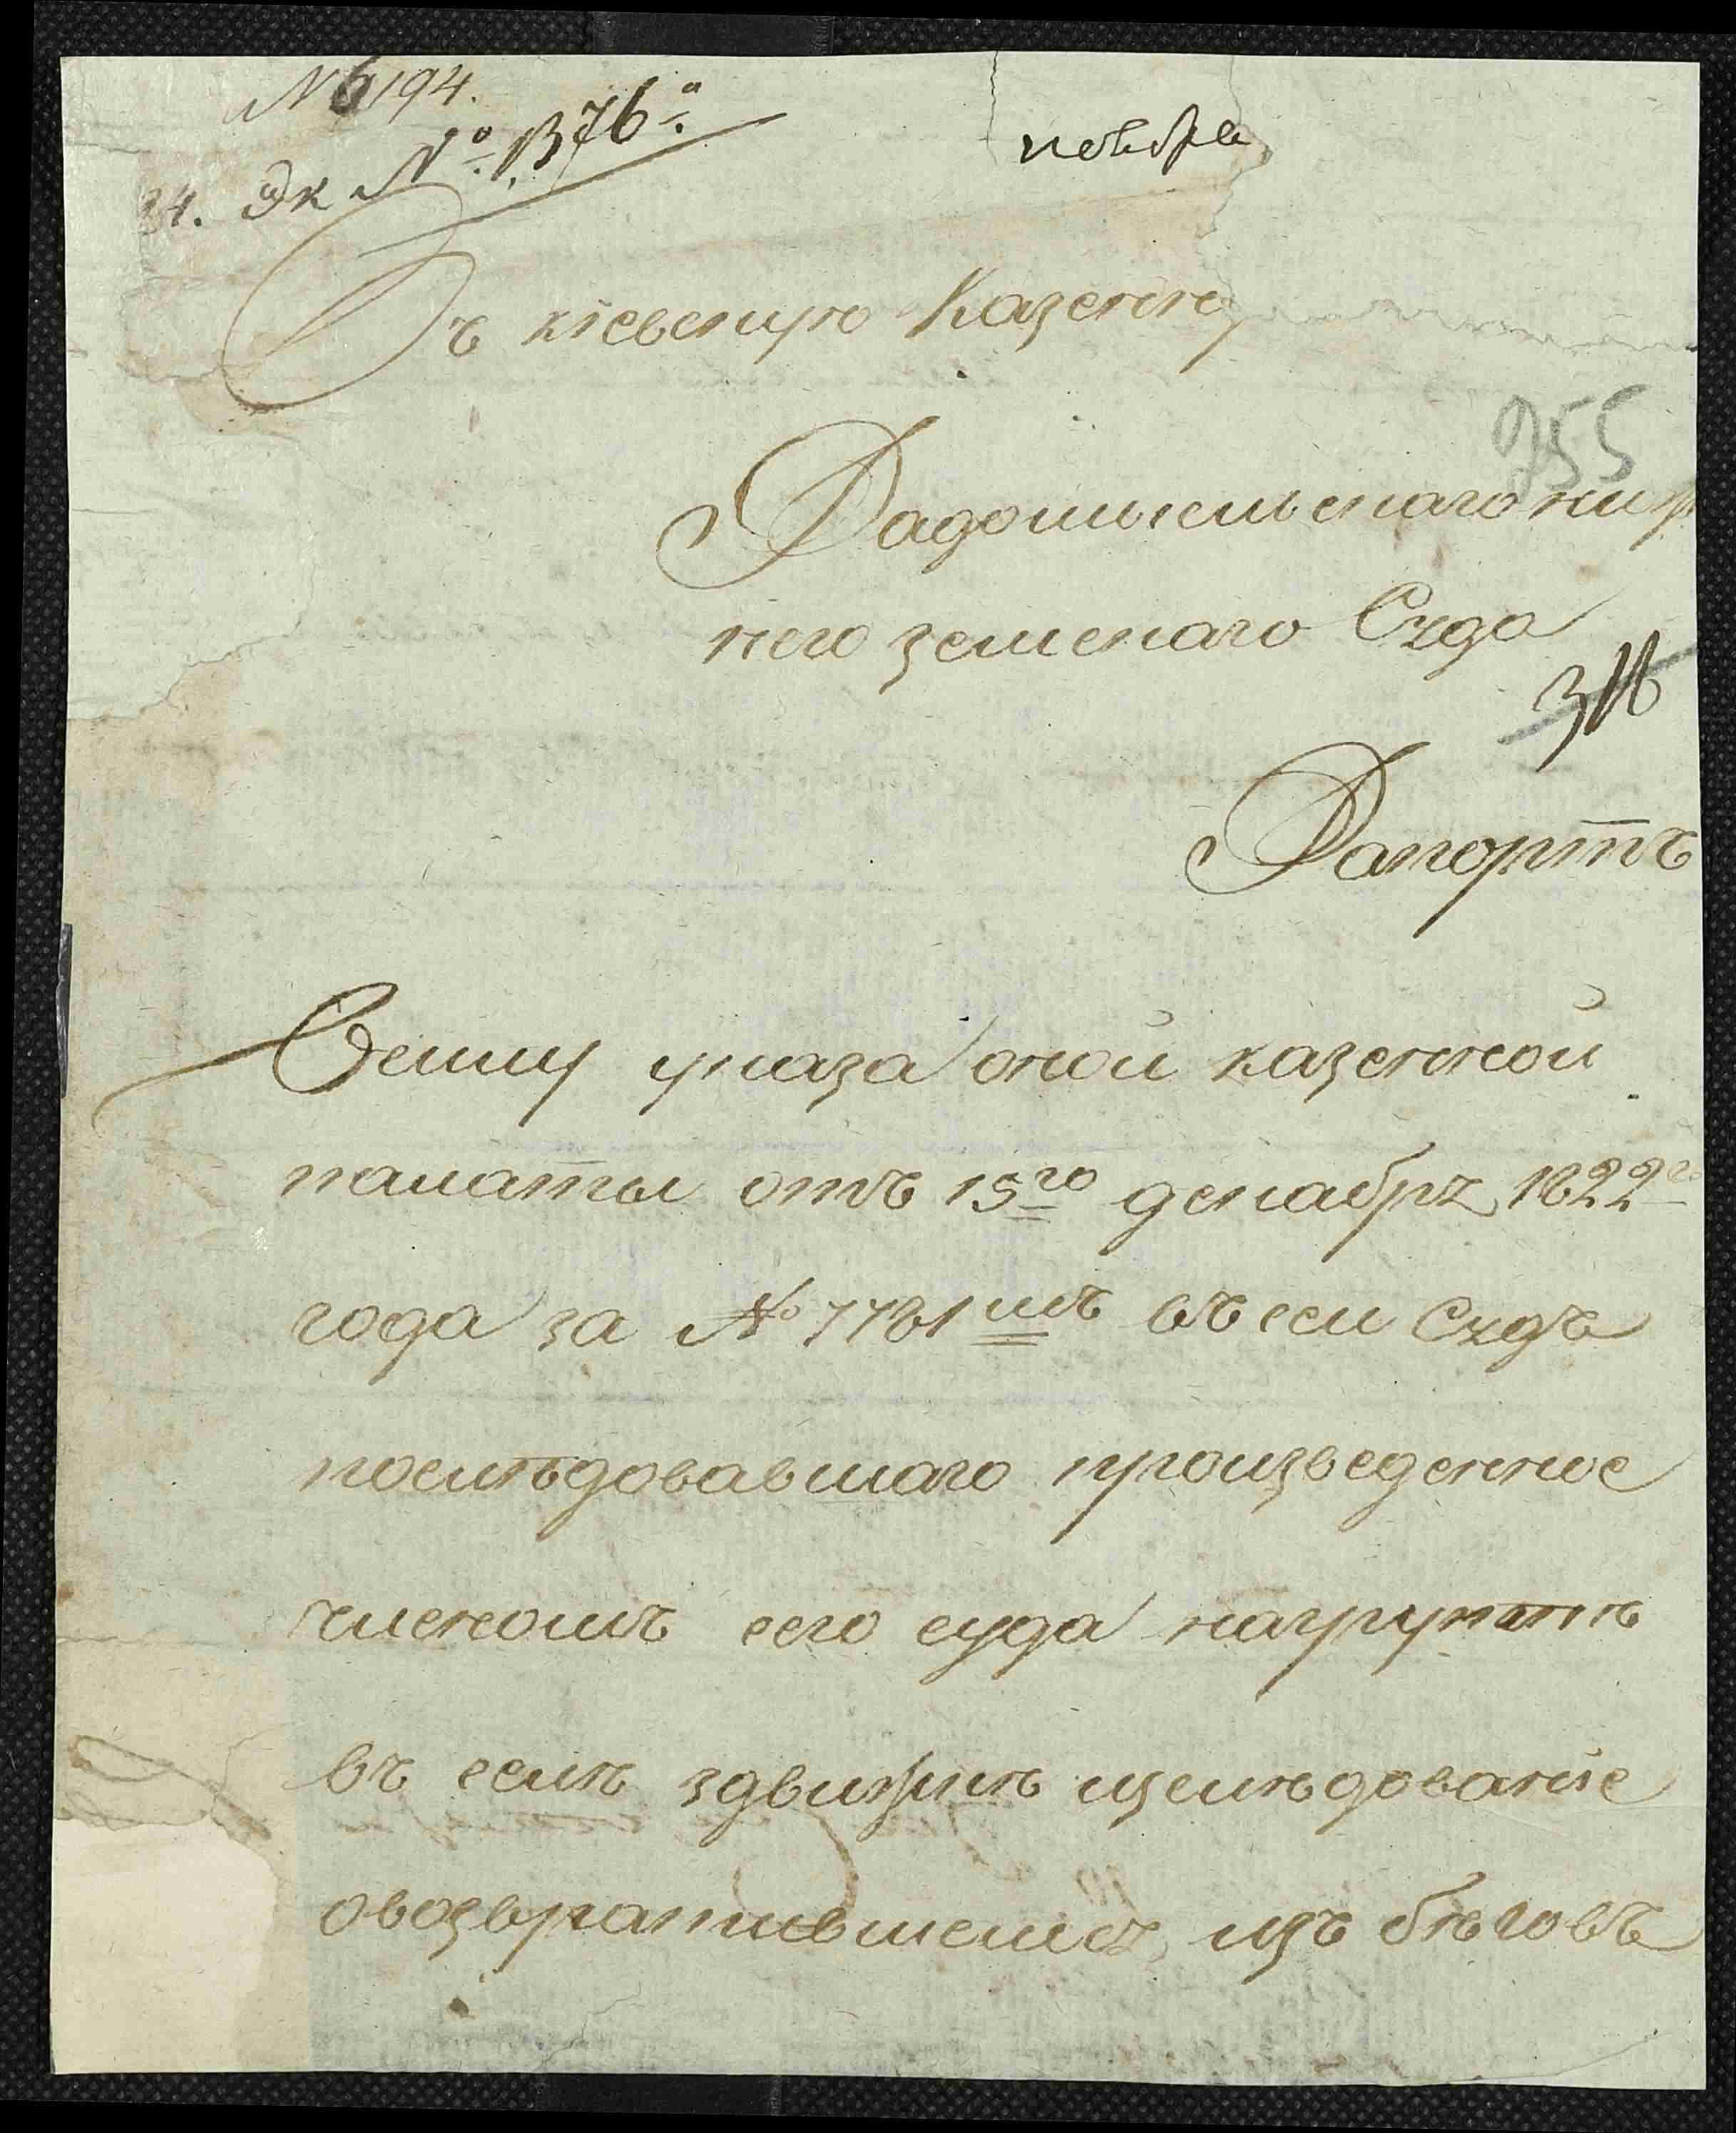 № 6194.
24. Эк № 1376.
ноября
Въ кіевскую Казенну
255
Радомысльскаго ниж
него земскаго Суда
316
Рапортъ
Всилу указа оной казенной
палаты отъ 15го декабря 1822го
года за № 7781мъ въ сей Судъ
последовавшаго произведенное
членомъ сего суда нагрунтѣ
въ селѣ здвижкѣ изслѣдованіе
овозвратившемся изъ бѣговъ